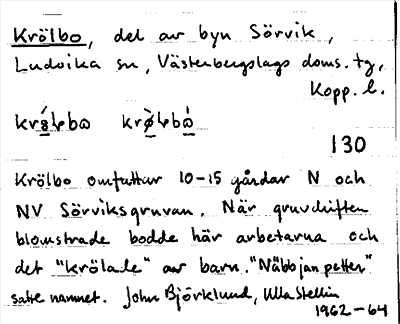 Krölbo, del av byn Sörvik,
Ludvika sn, Västerbergslags doms. tg,
Kopp. l.
130
Krölbo omfattar 10-15 gårdar N och
NV Sörviksgruvan. När gruvdriften
blomstrade bodde här arbetarna och
det "krölade" av barn. "Näbbjanpetter"
satte namnet. John Björklund, Ulla Stellin
1962-64